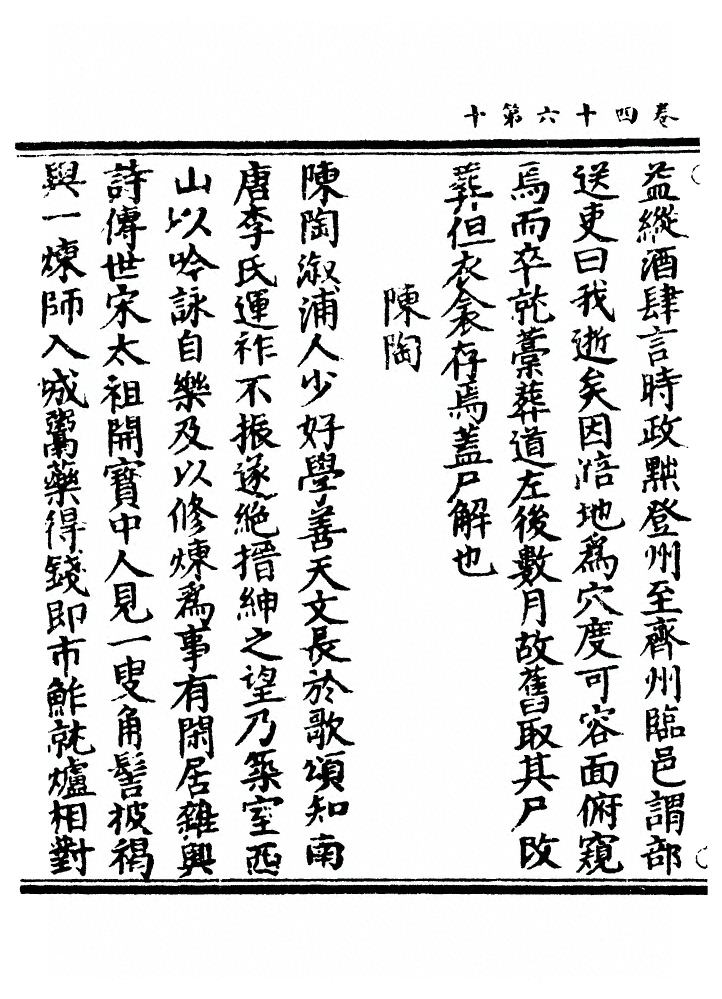 卷四十六第十
益縱酒肆言時政黜登州至齊州臨邑謂部
送吏曰我逝矣因掊地爲穴度可容面俯窺
焉而卒就藁葬道左後數月故舊取其尸改
葬但衣衾存焉蓋尸解也
陳陶
陳陶溆浦人少好學善天文長於歌頌知南
唐李氏運祚不振遂絕搢紳之望乃築室西
山以吟詠自樂及以修煉爲事有閑居雜興
詩傳世宋太祖開寶中人見一叟角髻披褐
與一煉師入城鬻藥得錢即市鮓就爐相對